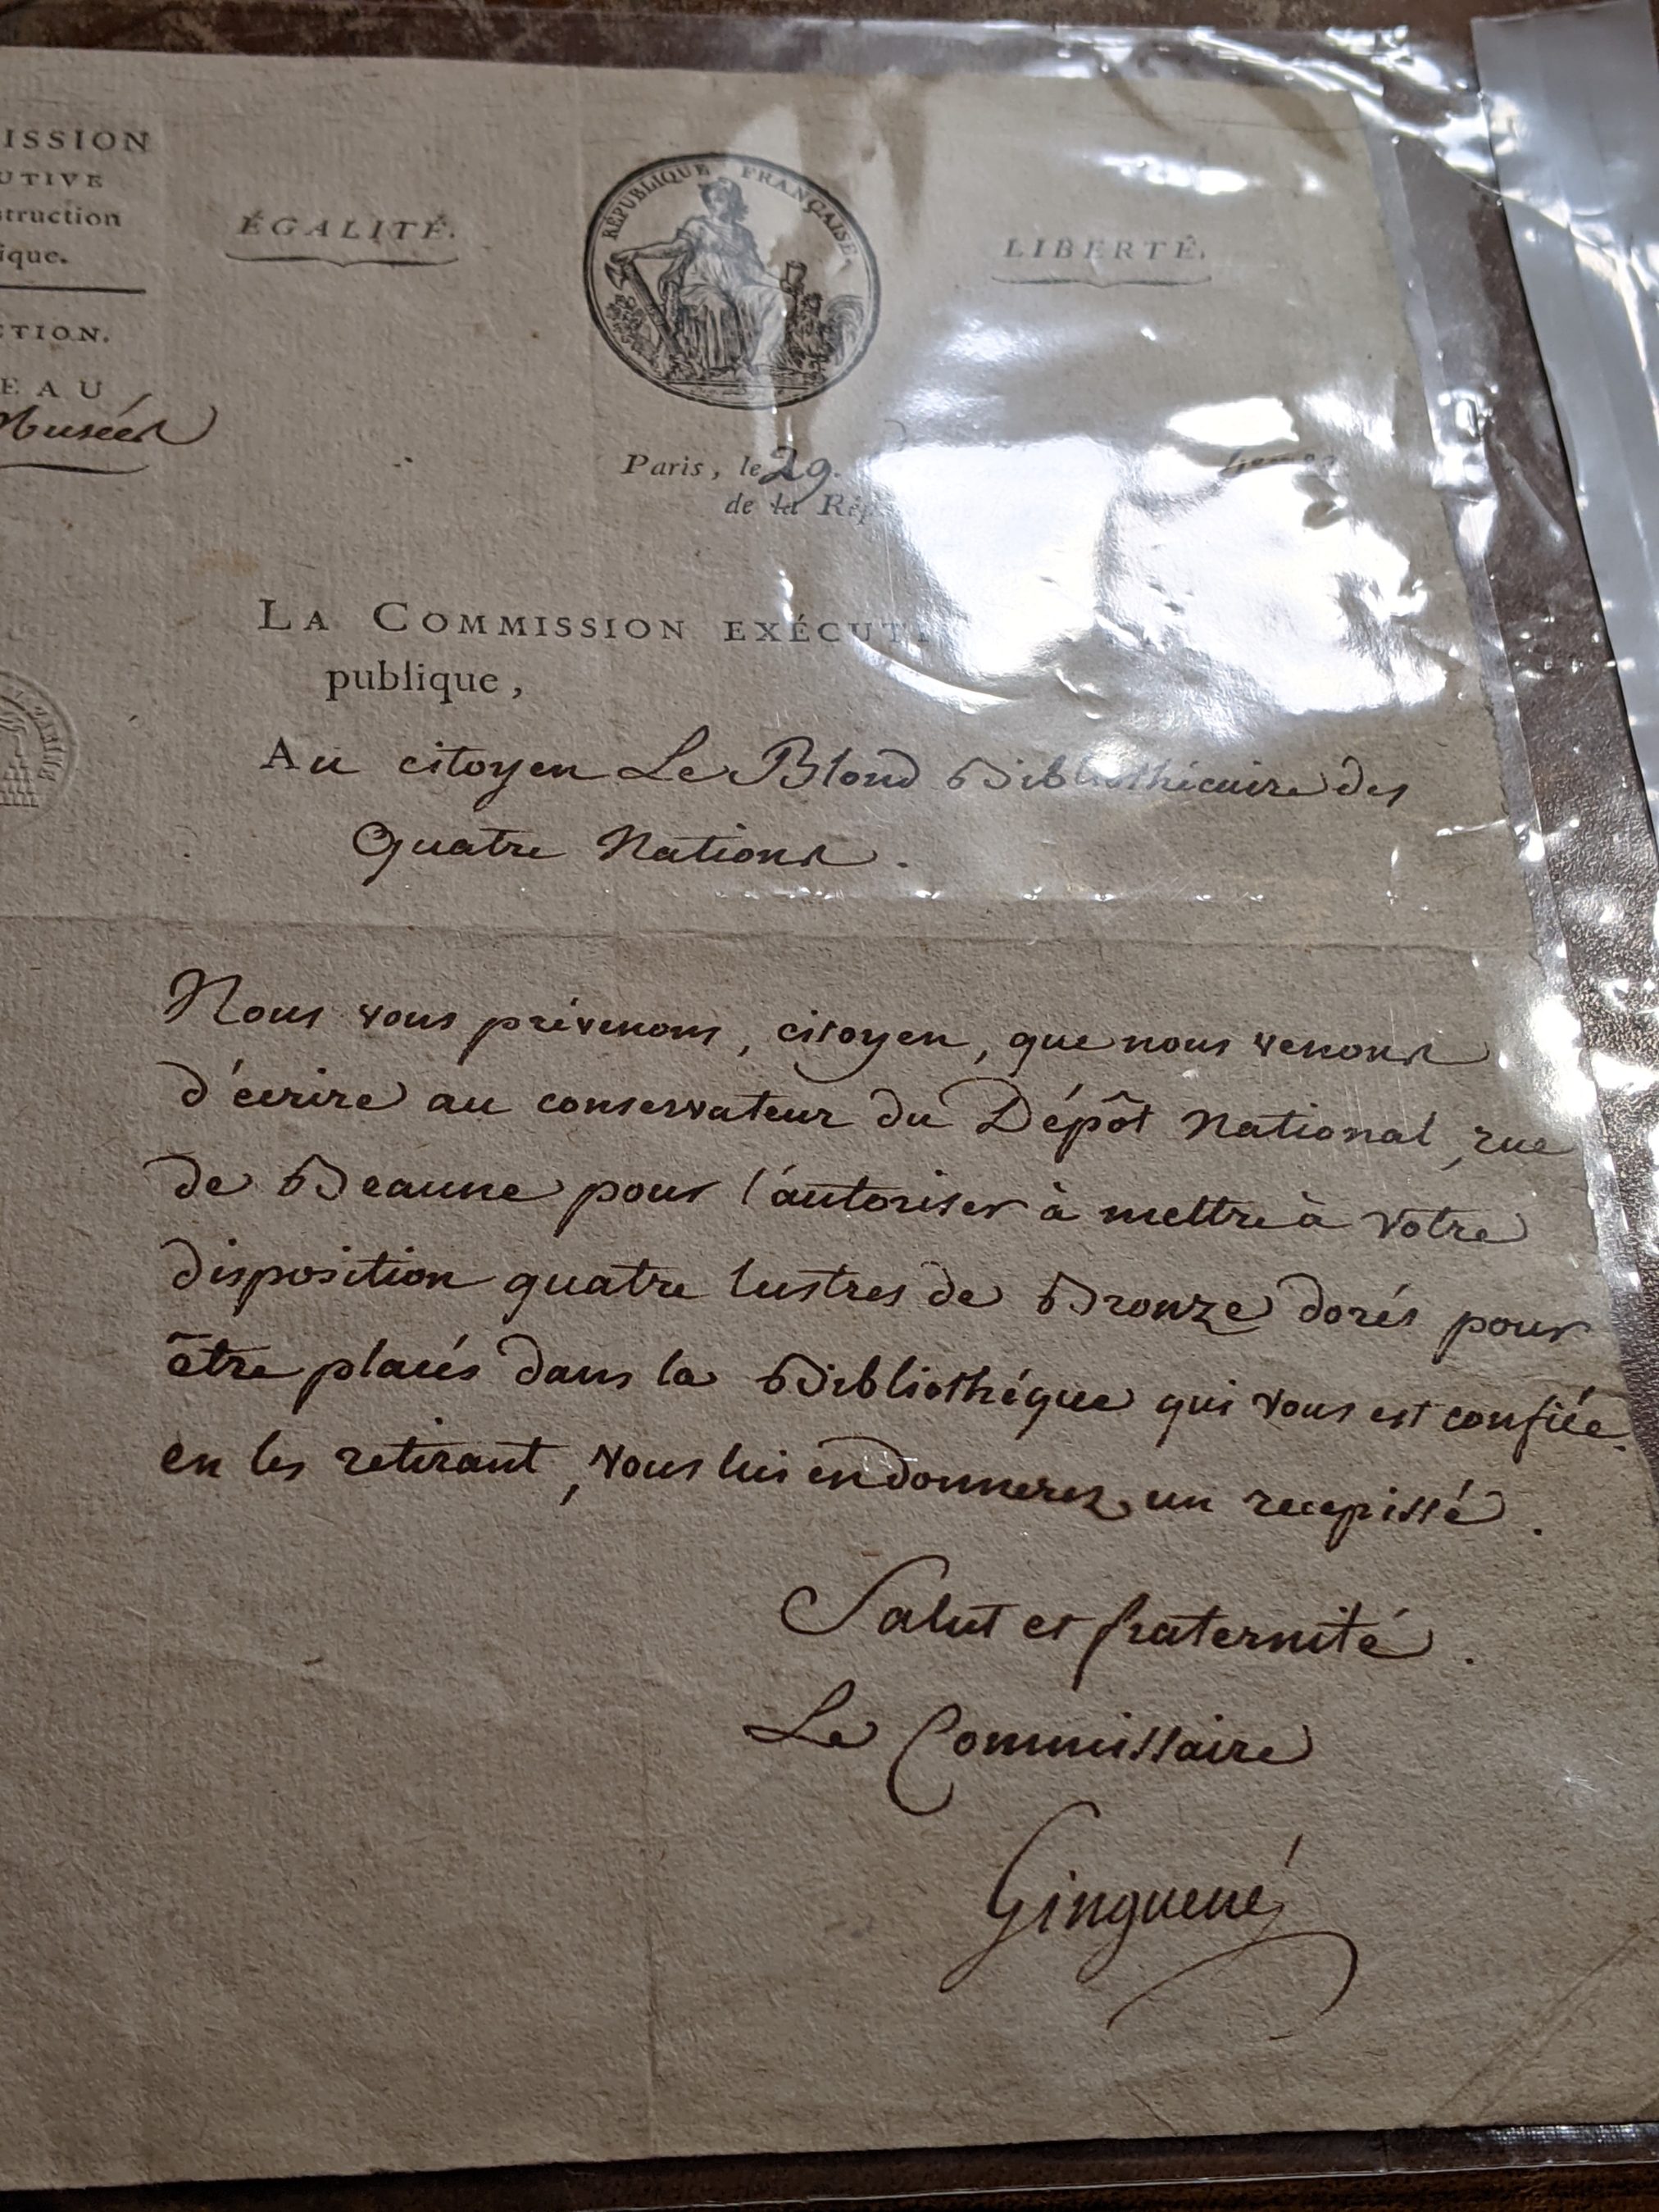 ISSION
UTIVE
struction
ique.
CTION.
EAU
Musées
ÉGALITÉ.
RÉPUBLIQUE FRANÇAISE
LIBERTÉ.
Paris, le 29.
de la Rép
LA COMMISSION EXÉCUT
publique,
Au citoyen Le Blond Bibliothécaire des
Quatre Nations.
Nous vous prévenons, citoyen, que nous venons
d'écrire au conservateur du Dépôt National, rue
de Beaune pour l'autoriser à mettre à votre
disposition quatre lustres de Bronze dorés pour
être placés dans la Bibliothéque qui vous est confiée.
en les retirant, vous lui en donnerez un recepissé.
Salut et fraternité.
Le Commissaire
Ginguené